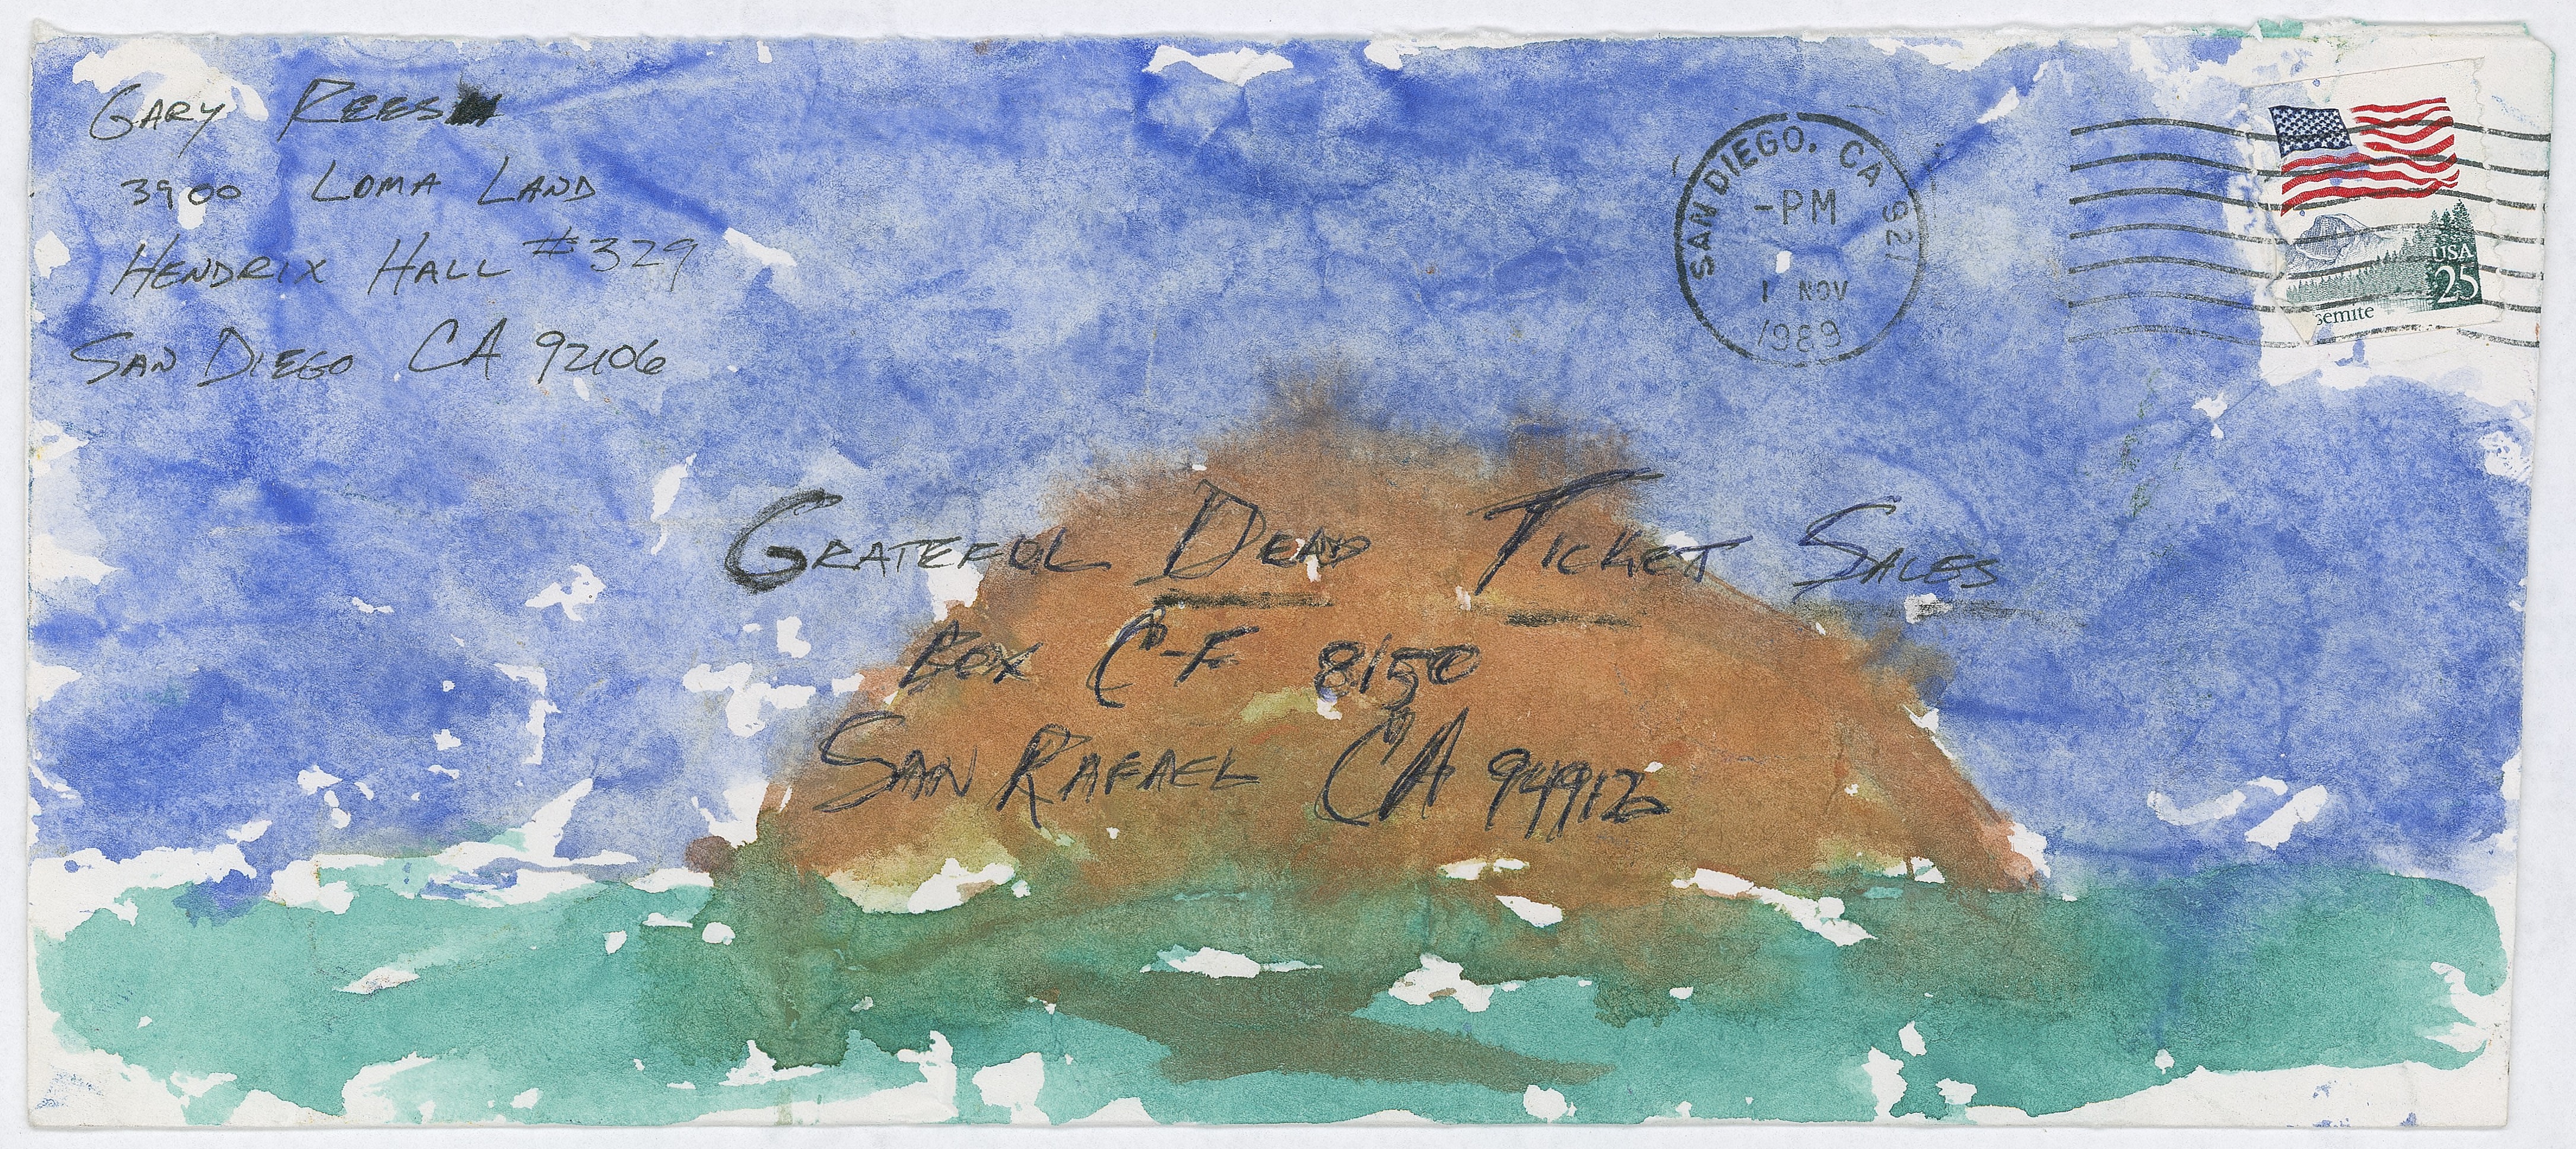 GARY REES
3900 LOMA LAND
HENDRIX HALL #329
SAN DIEGO CA 92106
SAN DIEGO, CA 921
-PM
1 NOV
1989
USA
25
semite
GRATEFUL DEAD TICKET SALES
BOX C-F 8150
SAN RAFAEL CA 94912